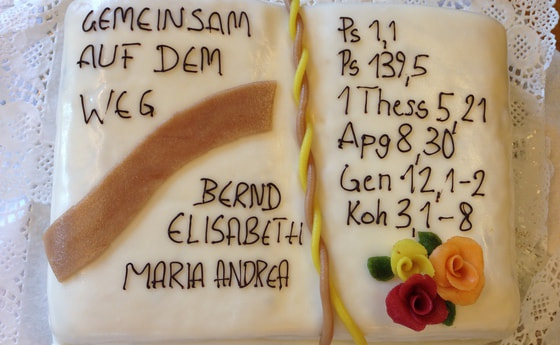 GEMEINSAM
AUF DEM
WEG
BERND
ELISABETH
MARIA ANDREA
Ps 1,1
Ps 139,5
1 Thess 5,21
Apg 8,30
Gen 12,1-2
Koh 3,1-8